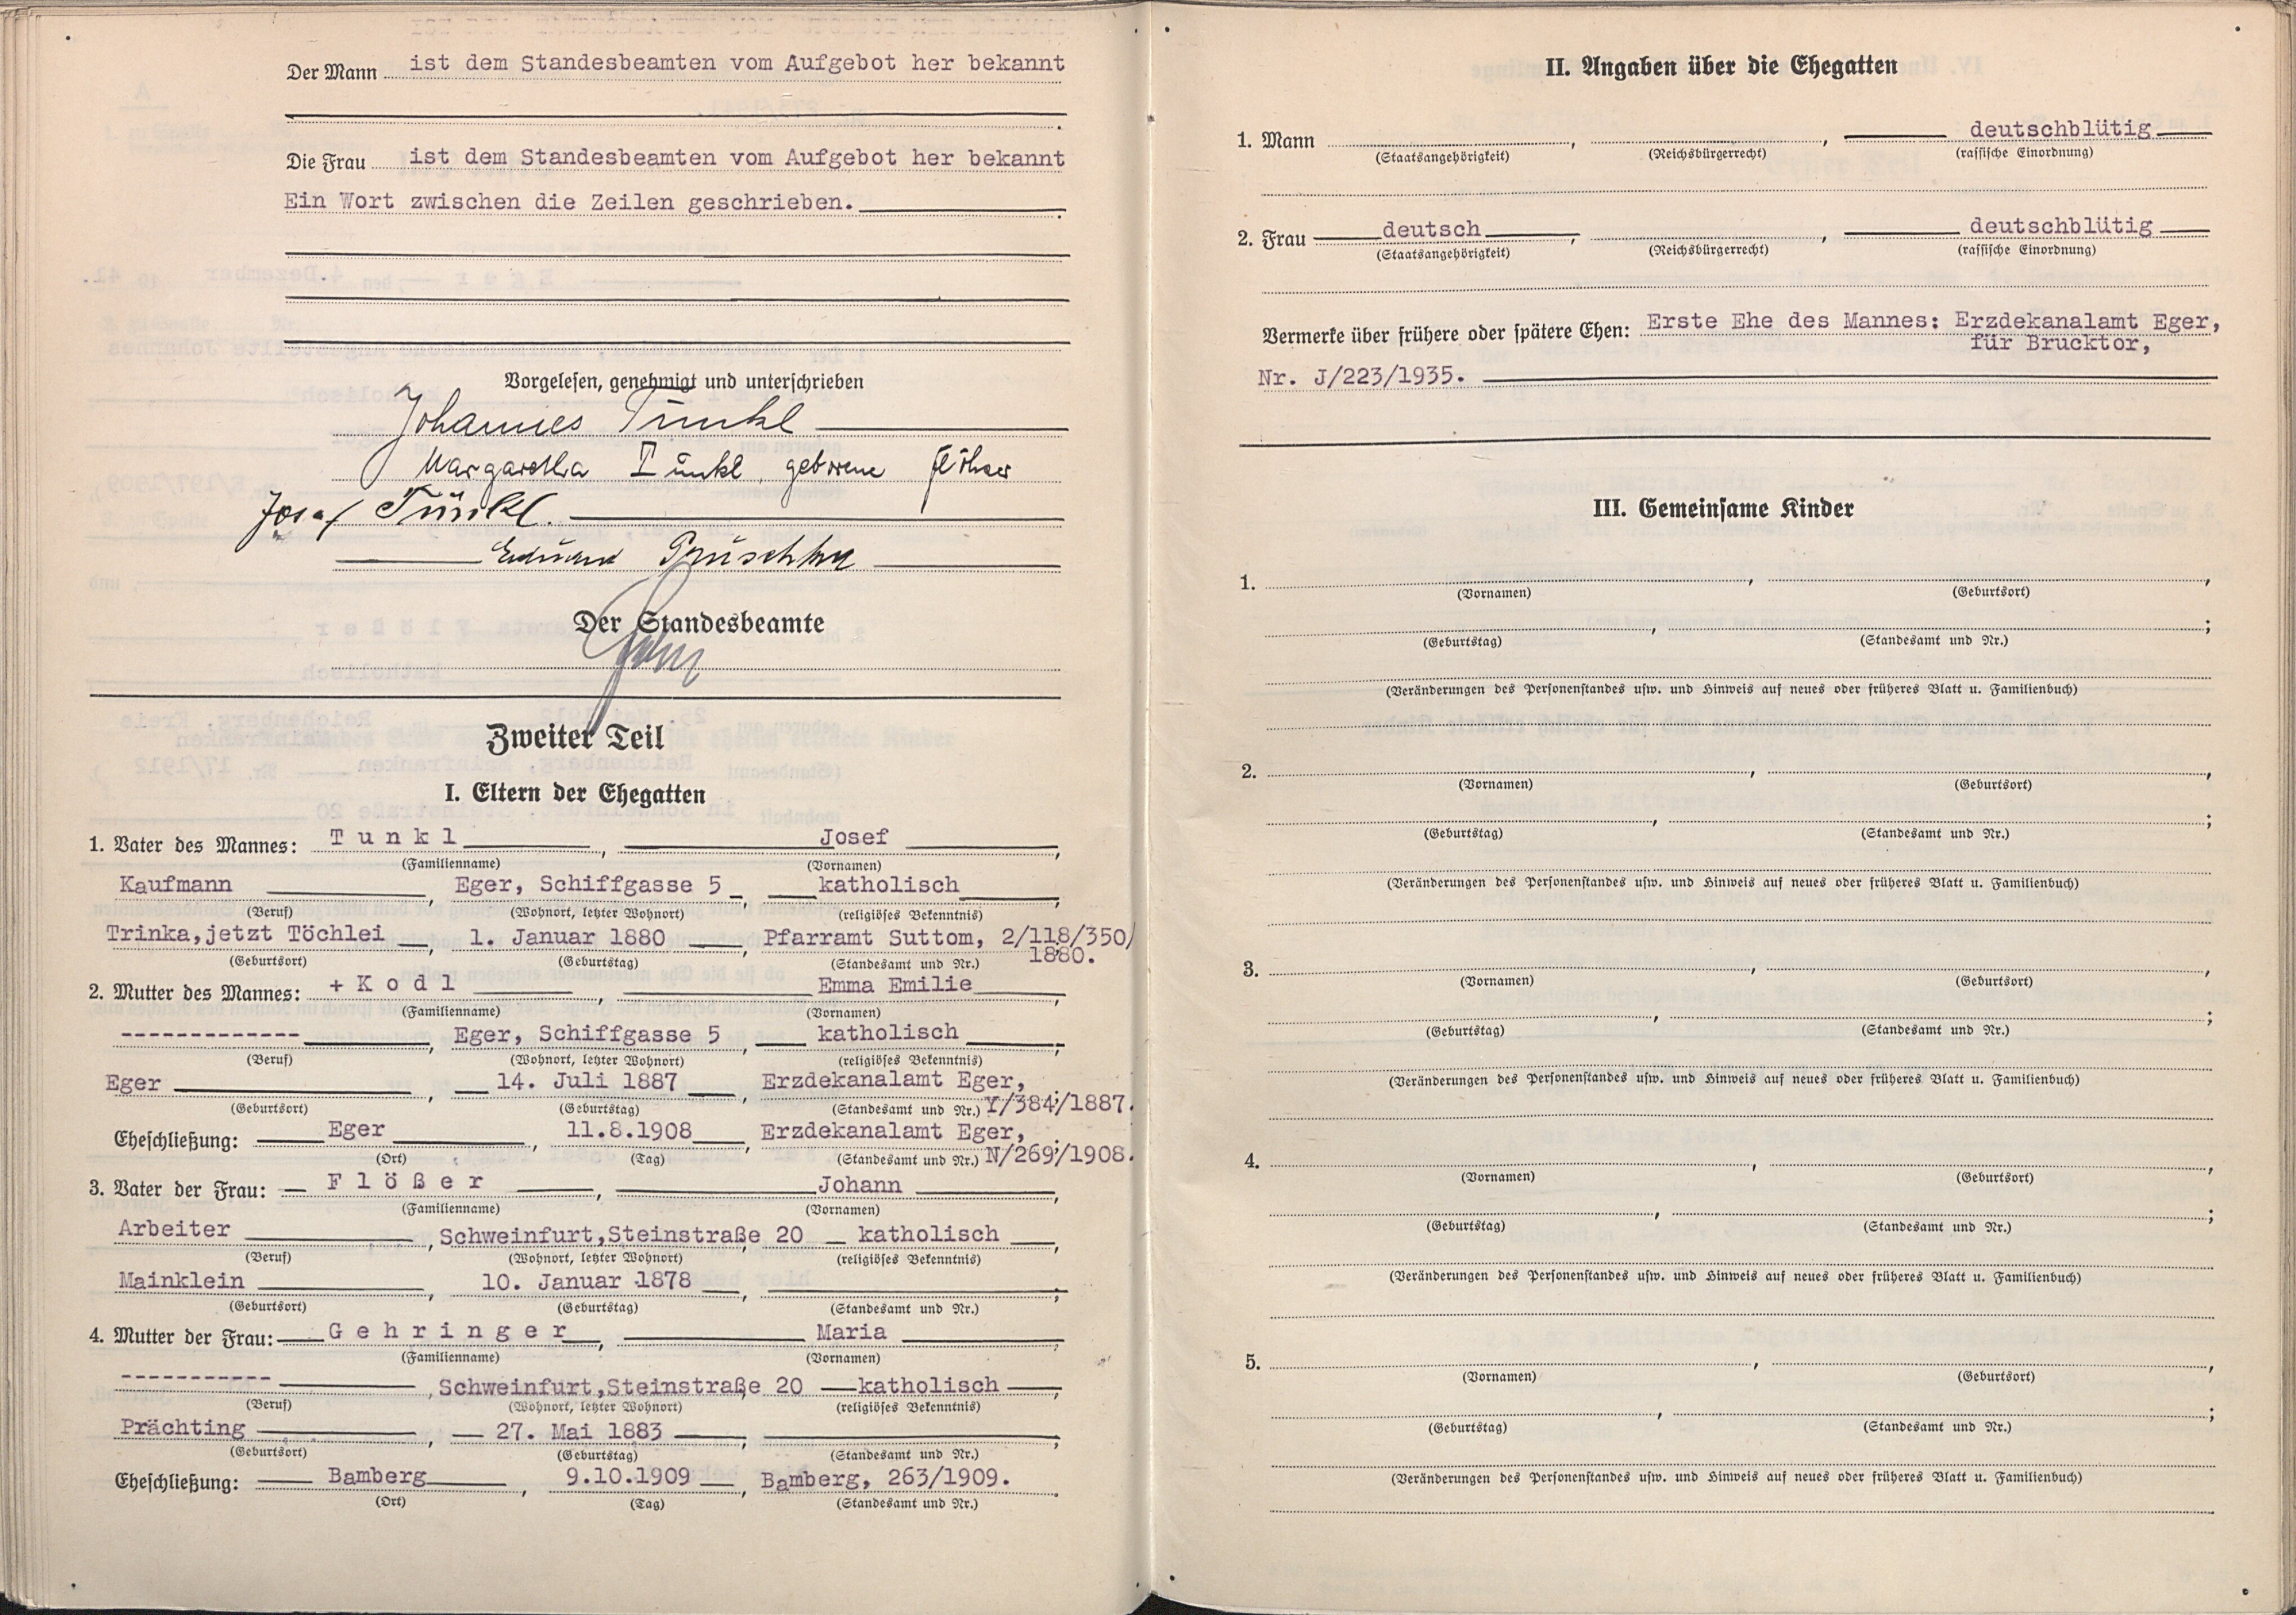 Der Mann ist dem Standesbeamten vom Aufgebot her bekannt
Die Frau ist dem Standesbeamten vom Aufgebot her bekannt
Ein Wort zwischen die Zeilen geschrieben.
Vorgelesen, genehmigt und unterschrieben
Johannes Tunkl
Margaretha Tunkl geborene Flößer
Josef Tunkl.
Eduard
Der Standesbeamte
Zweiter Teil
I. Eltern der Ehegatten
1. Vater des Mannes: Tunkl, Josef
(Familienname) (Vornamen)
Kaufmann, Eger, Schiffgasse 5, katholisch,
(Beruf) (Wohnort, letzter Wohnort) (religiöses Bekenntnis)
Trinka, jetzt Töchlei, 1. Januar 1880, Pfarramt Suttom, 2/118/350/
1880.
(Geburtsort) (Geburtstag) (Standesamt und Nr.)
2. Mutter des Mannes: + Kodl, Emma Emilie,
(Familienname) (Vornamen)
------------- , Eger, Schiffgasse 5, katholisch,
(Beruf) (Wohnort, letzter Wohnort) (religiöses Bekenntnis)
Eger, 14. Juli 1887, Erzdekanalamt Eger,
(Geburtsort) (Geburtstag) (Standesamt und Nr.) Y/384/1887.
Eheschließung: Eger, 11.8.1908, Erzdekanalamt Eger,
(Ort) (Tag) (Standesamt und Nr.) N/269/1908.
3. Vater der Frau: Flößer, Johann,
(Familienname) (Vornamen)
Arbeiter, Schweinfurt, Steinstraße 20 katholisch,
(Beruf) (Wohnort, letzter Wohnort) (religiöses Bekenntnis)
Mainklein, 10. Januar 1878, ;
(Geburtsort) (Geburtstag) (Standesamt und Nr.)
4. Mutter der Frau: Gehringer, Maria,
(Familienname) (Vornamen)
----------- , Schweinfurt, Steinstraße 20 katholisch,
(Beruf) (Wohnort, letzter Wohnort) (religiöses Bekenntnis)
Prächting, 27. Mai 1883, ;
(Geburtsort) (Geburtstag) (Standesamt und Nr.)
Eheschließung: Bamberg, 9.10.1909, Bamberg, 263/1909.
(Ort) (Tag) (Standesamt und Nr.)
II. Angaben über die Ehegatten
1. Mann , , deutschblütig
(Staatsangehörigkeit) (Reichsbürgerrecht) (rassische Einordnung)
2. Frau deutsch, , deutschblütig
(Staatsangehörigkeit) (Reichsbürgerrecht) (rassische Einordnung)
Vermerke über frühere oder spätere Ehen: Erste Ehe des Mannes: Erzdekanalamt Eger,
für Brucktor,
Nr. J/223/1935.
III. Gemeinsame Kinder
1. , ,
(Vornamen) (Geburtsort)
, ;
(Geburtstag) (Standesamt und Nr.)
(Veränderungen des Personenstandes usw. und Hinweis auf neues oder früheres Blatt u. Familienbuch)
2. , ,
(Vornamen) (Geburtsort)
, ;
(Geburtstag) (Standesamt und Nr.)
(Veränderungen des Personenstandes usw. und Hinweis auf neues oder früheres Blatt u. Familienbuch)
3. , ,
(Vornamen) (Geburtsort)
, ;
(Geburtstag) (Standesamt und Nr.)
(Veränderungen des Personenstandes usw. und Hinweis auf neues oder früheres Blatt u. Familienbuch)
4. , ,
(Vornamen) (Geburtsort)
, ;
(Geburtstag) (Standesamt und Nr.)
(Veränderungen des Personenstandes usw. und Hinweis auf neues oder früheres Blatt u. Familienbuch)
5. , ,
(Vornamen) (Geburtsort)
, ;
(Geburtstag) (Standesamt und Nr.)
(Veränderungen des Personenstandes usw. und Hinweis auf neues oder früheres Blatt u. Familienbuch)